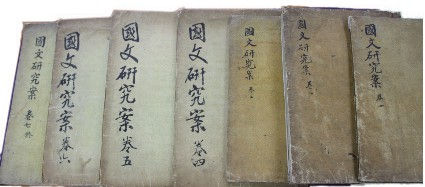 國文硏究案 卷一
國文硏究案 卷
國文硏究案 卷
國文硏究案 卷四
國文硏究案 卷五
國文硏究案 卷六
國文硏究案 卷七終